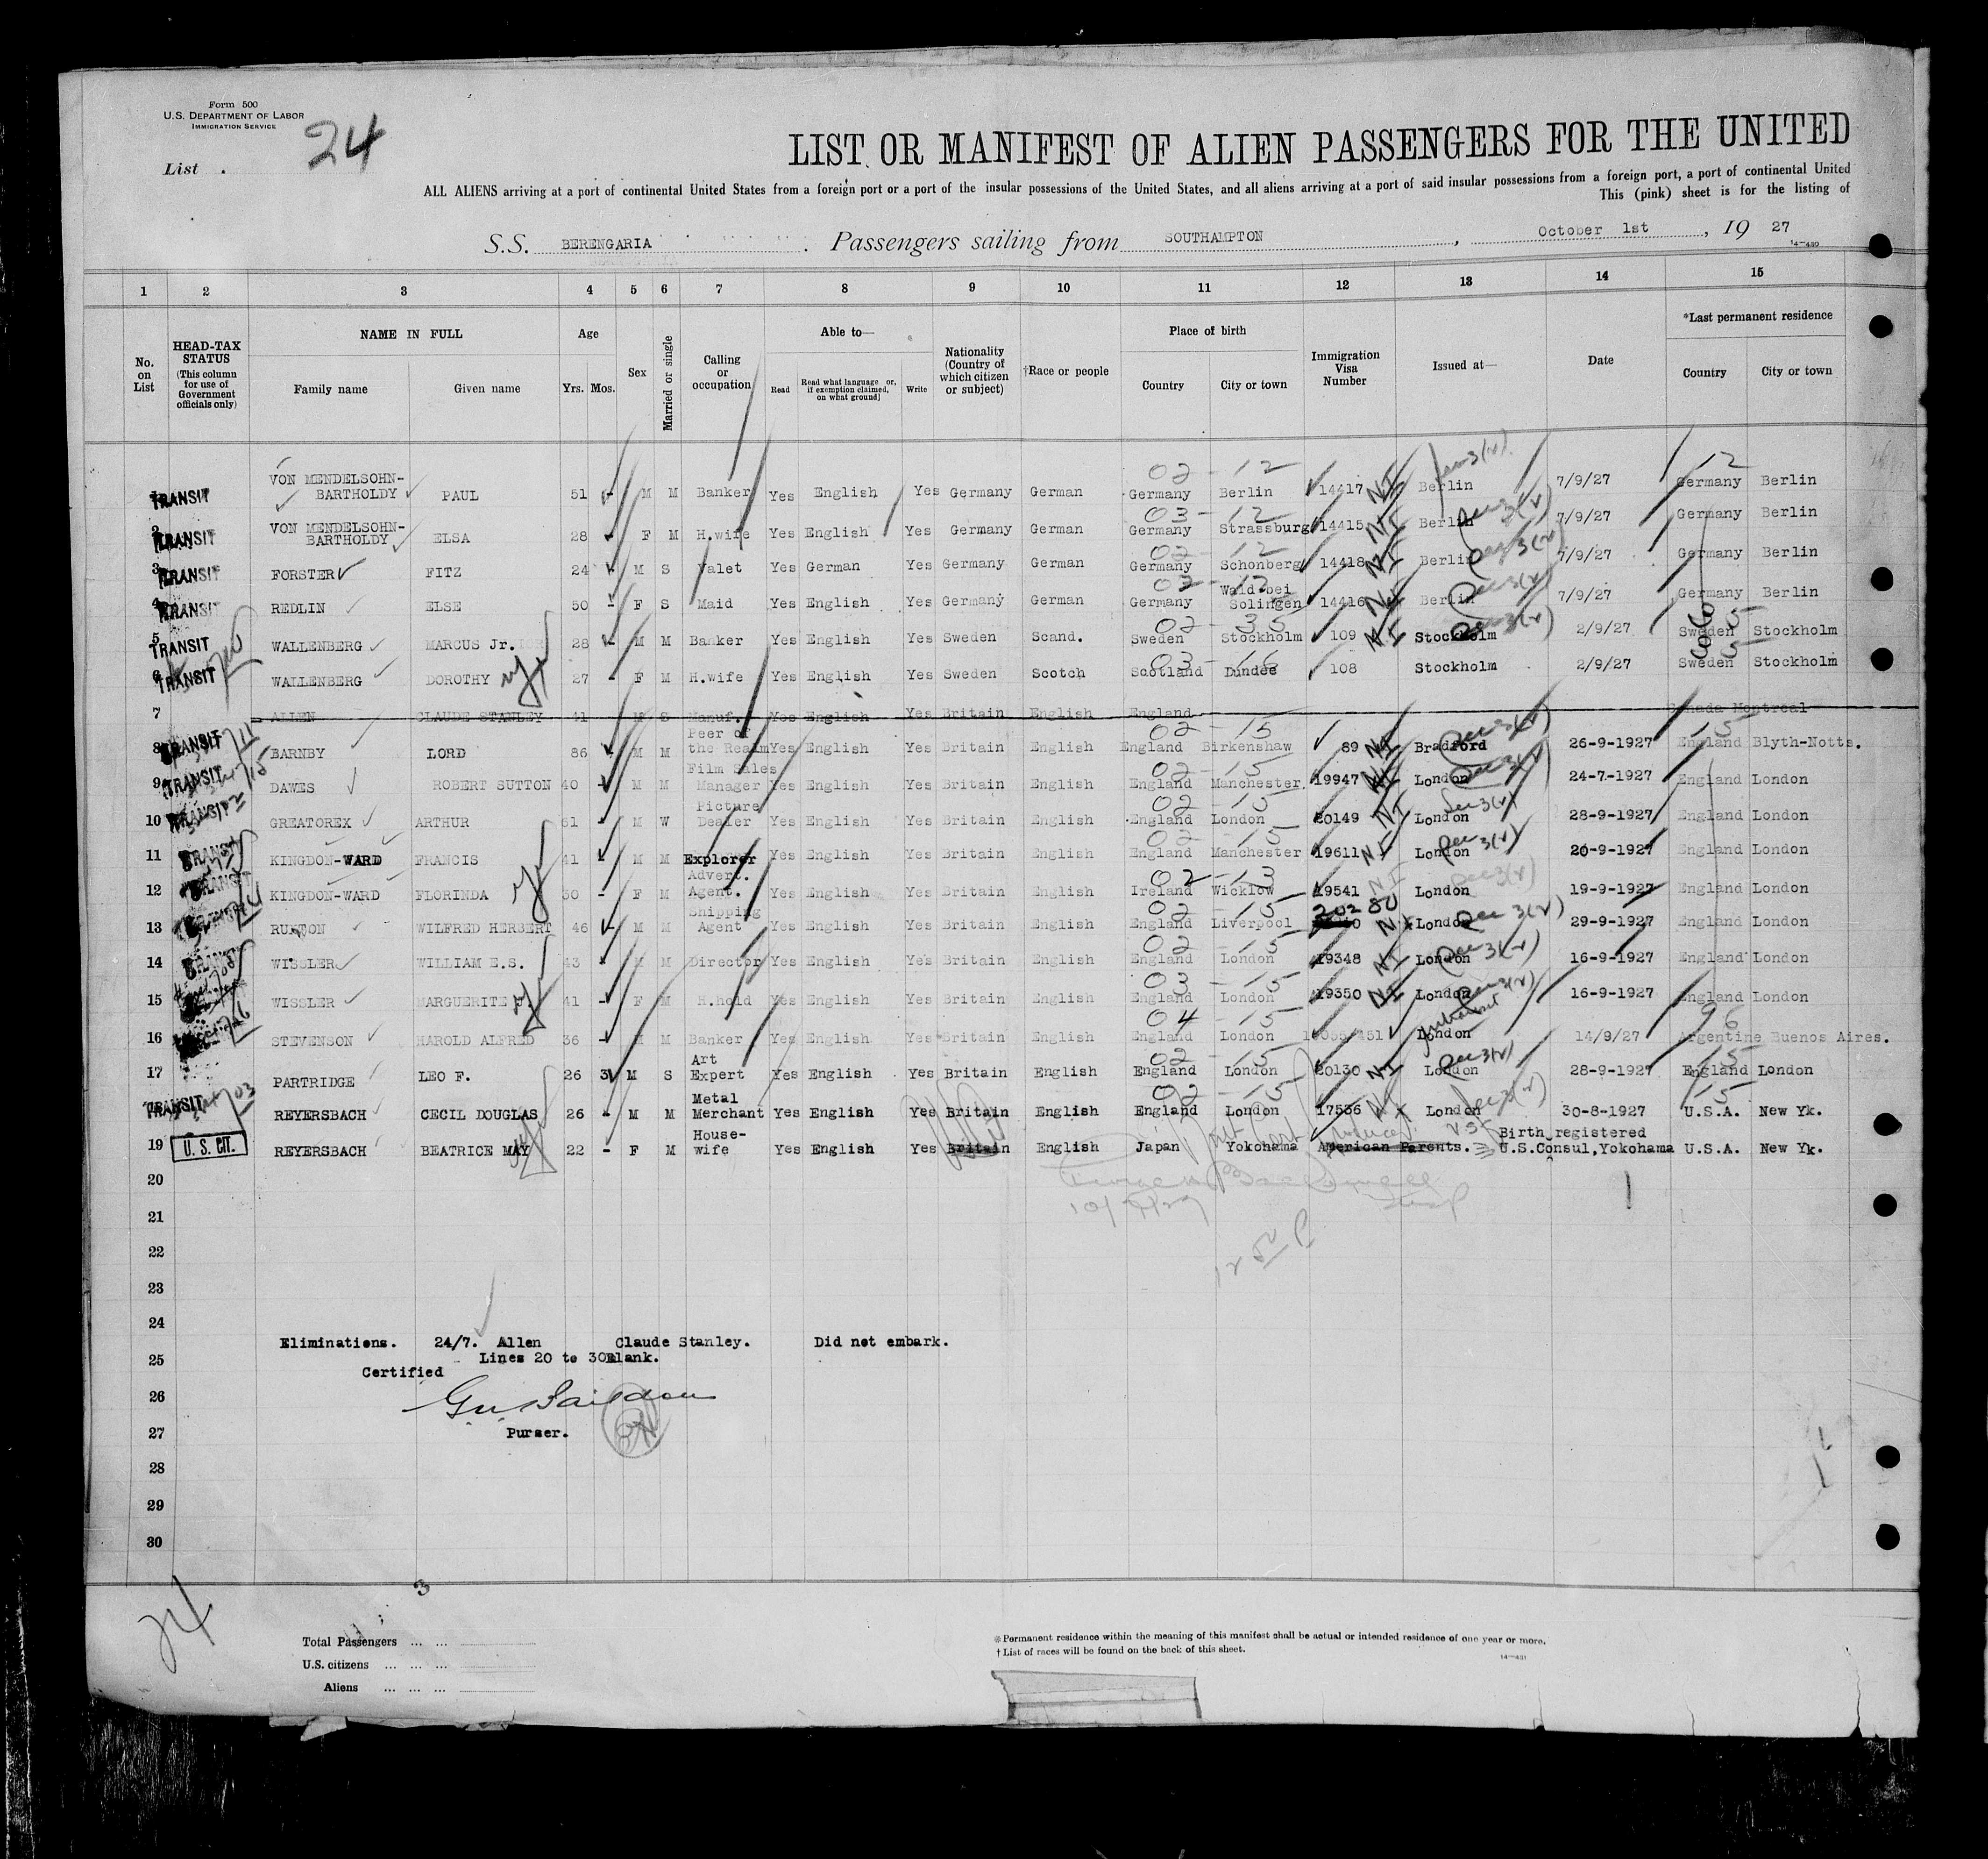 Form 500
U.S. DEPARTMENT OF LABOR
IMMIGRATION SERVICE
List 24
LIST OR MANIFEST OF ALIEN PASSENGERS FOR THE UNITED
ALL ALIENS arriving at a port of continental United States from a foreign port or a port of the insular possessions of the United States, and all aliens arriving at a port of said insular possessions from a foreign port, a port of continental United
This (pink) sheet is for the listing of
S.S. BERENGARIA Passengers sailing from SOUTHAMPTON, October 1st, 19 27
14-430
1 2 3 4 5 6 7 8 9 10 11 12 13 14 15
No. on List
HEAD-TAX STATUS (This column for use of Government officials only)
NAME IN FULL Family name Given name
Age Yrs. Mos.
Sex
Married or single
Calling or occupation
Able to— Read Read what language or, if exemption claimed, on what ground] Write
Nationality (Country of which citizen or subject)
†Race or people
Place of birth Country City or town
Immigration Visa Number
Issued at—
Date
*Last permanent residence Country City or town
TRANSIT VON MENDELSOHN-BARTHOLDY PAUL 51 - M M Banker Yes English Yes Germany German 02-12 Germany Berlin 14417 NI Berlin Sec 3(2) 7/9/27 12 Germany Berlin
2 TRANSIT VON MENDELSOHN-BARTHOLDY ELSA 28 - F M H.wife Yes English Yes Germany German 03-12 Germany Strassburg 14415 NI Berlin Sec 3(2) 7/9/27 Germany Berlin
3 TRANSIT FORSTER FITZ 24 M S Valet Yes German Yes Germany German 02-12 Germany Schonberg 14418 NI Berlin Sec 3(2) 7/9/27 Germany Berlin
4 TRANSIT REDLIN ELSE 50 - F S Maid Yes English Yes Germany German 02-12 Germany Wald bei Solingen 14416 NI Berlin Sec 3(2) 7/9/27 Germany Berlin
5 TRANSIT WALLENBERG MARCUS Jr. 28 - M M Banker Yes English Yes Sweden Scand. 02-35 Sweden Stockholm 109 NI Stockholm Sec 3(2) 2/9/27 Sweden Stockholm
6 TRANSIT WALLENBERG DOROTHY 27 - F M H.wife Yes English Yes Sweden Scotch 03-16 Scotland Dundee 108 Stockholm 2/9/27 Sweden Stockholm
7 ALLEN CLAUDE STANLEY 41 - M S Manuf. Yes English Yes Britain English England Canada Montreal
8 TRANSIT BARNBY LORD 86 M M Peer of the Realm Yes English Yes Britain English 02-15 England Birkenshaw 89 NI Bradford Sec 3(2) 26-9-1927 15 England Blyth-Notts.
9 TRANSIT DAWES ROBERT SUTTON 40 - M M Film Sales Manager Yes English Yes Britain English 02-15 England Manchester 19947 NI London Sec 3(2) 24-7-1927 England London
10 TRANSIT GREATOREX ARTHUR 61 - M W Picture Dealer Yes English Yes Britain English 02-15 England London 20149 NI London Sec 3(2) 28-9-1927 England London
11 TRANSIT KINGDON-WARD FRANCIS 41 M M Explorer Yes English Yes Britain English 02-15 England Manchester 19611 NI London Sec 3(2) 20-9-1927 England London
12 TRANSIT KINGDON-WARD FLORINDA 30 - F M Advert. Agent. Yes English Yes Britain English 02-13 Ireland Wicklow 19541 NI London Sec 3(2) 19-9-1927 England London
13 TRANSIT RUXTON WILFRED HERBERT 46 - M M Shipping Agent Yes English Yes Britain English 02-15 England Liverpool 20280 NI London Sec 3(2) 29-9-1927 England London
14 TRANSIT WISSLER WILLIAM E.S. 43 - M M Director Yes English Yes Britain English 02-15 England London 19348 NI London Sec 3(2) 16-9-1927 England London
15 WISSLER MARGUERITE F. 41 - F M H.hold Yes English Yes Britain English 03-15 England London 19350 NI London Sec 3(2) 16-9-1927 England London
16 STEVENSON HAROLD ALFRED 36 - M M Banker Yes English Yes Britain English 04-15 England London London 14/9/27 96 Argentine Buenos Aires.
17 PARTRIDGE LEO F. 26 3 M S Art Expert Yes English Yes Britain English 02-15 England London 20130 NI London Sec 3(2) 28-9-1927 15 England London
TRANSIT 703 REYERSBACH CECIL DOUGLAS 26 - M M Metal Merchant Yes English Yes Britain English 02-15 England London 17536 London Sec 3(2) 30-8-1927 15 U.S.A. New Yk.
19 U. S. CIT. REYERSBACH BEATRICE MAY 22 - F M House-wife Yes English Yes Britain English Japan Yokohama American Parents. Birth registered U.S.Consul,Yokohama U.S.A. New Yk.
20
21
22
23
24
Eliminations. 24/7. Allen Claude Stanley. Did not embark.
25 Lines 20 to 30 Blank.
Certified
26
27 Purser.
28
29
30
3
24
Total Passengers ... ...
U.S. citizens ... ... ...
Aliens ... ... ...
*Permanent residence within the meaning of this manifest shall be actual or intended residence of one year or more.
†List of races will be found on the back of this sheet.
14-431